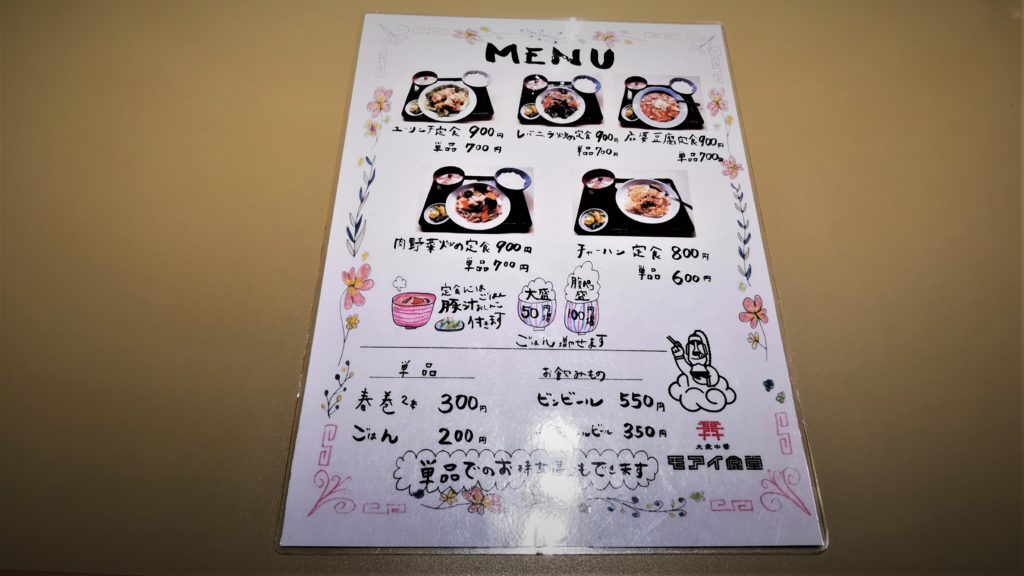 MENU
ユーリンチ定食 900円
単品 700円
レバニラ炒め定食 900円
単品 700円
麻婆豆腐定食 900円
単品 700円
肉野菜炒め定食 900円
単品 700円
チャーハン定食 800円
単品 600円
定食には
ごはん
豚汁おしんこ
付きます
大盛
50円増
盛
100円増
ごはん増やせます
単品
春巻2本 300円
ごはん 200円
お飲みもの
ビンビール 550円
ルビール 350円
単品でのお持ち帰りもできます
大衆中華
モアイ食堂